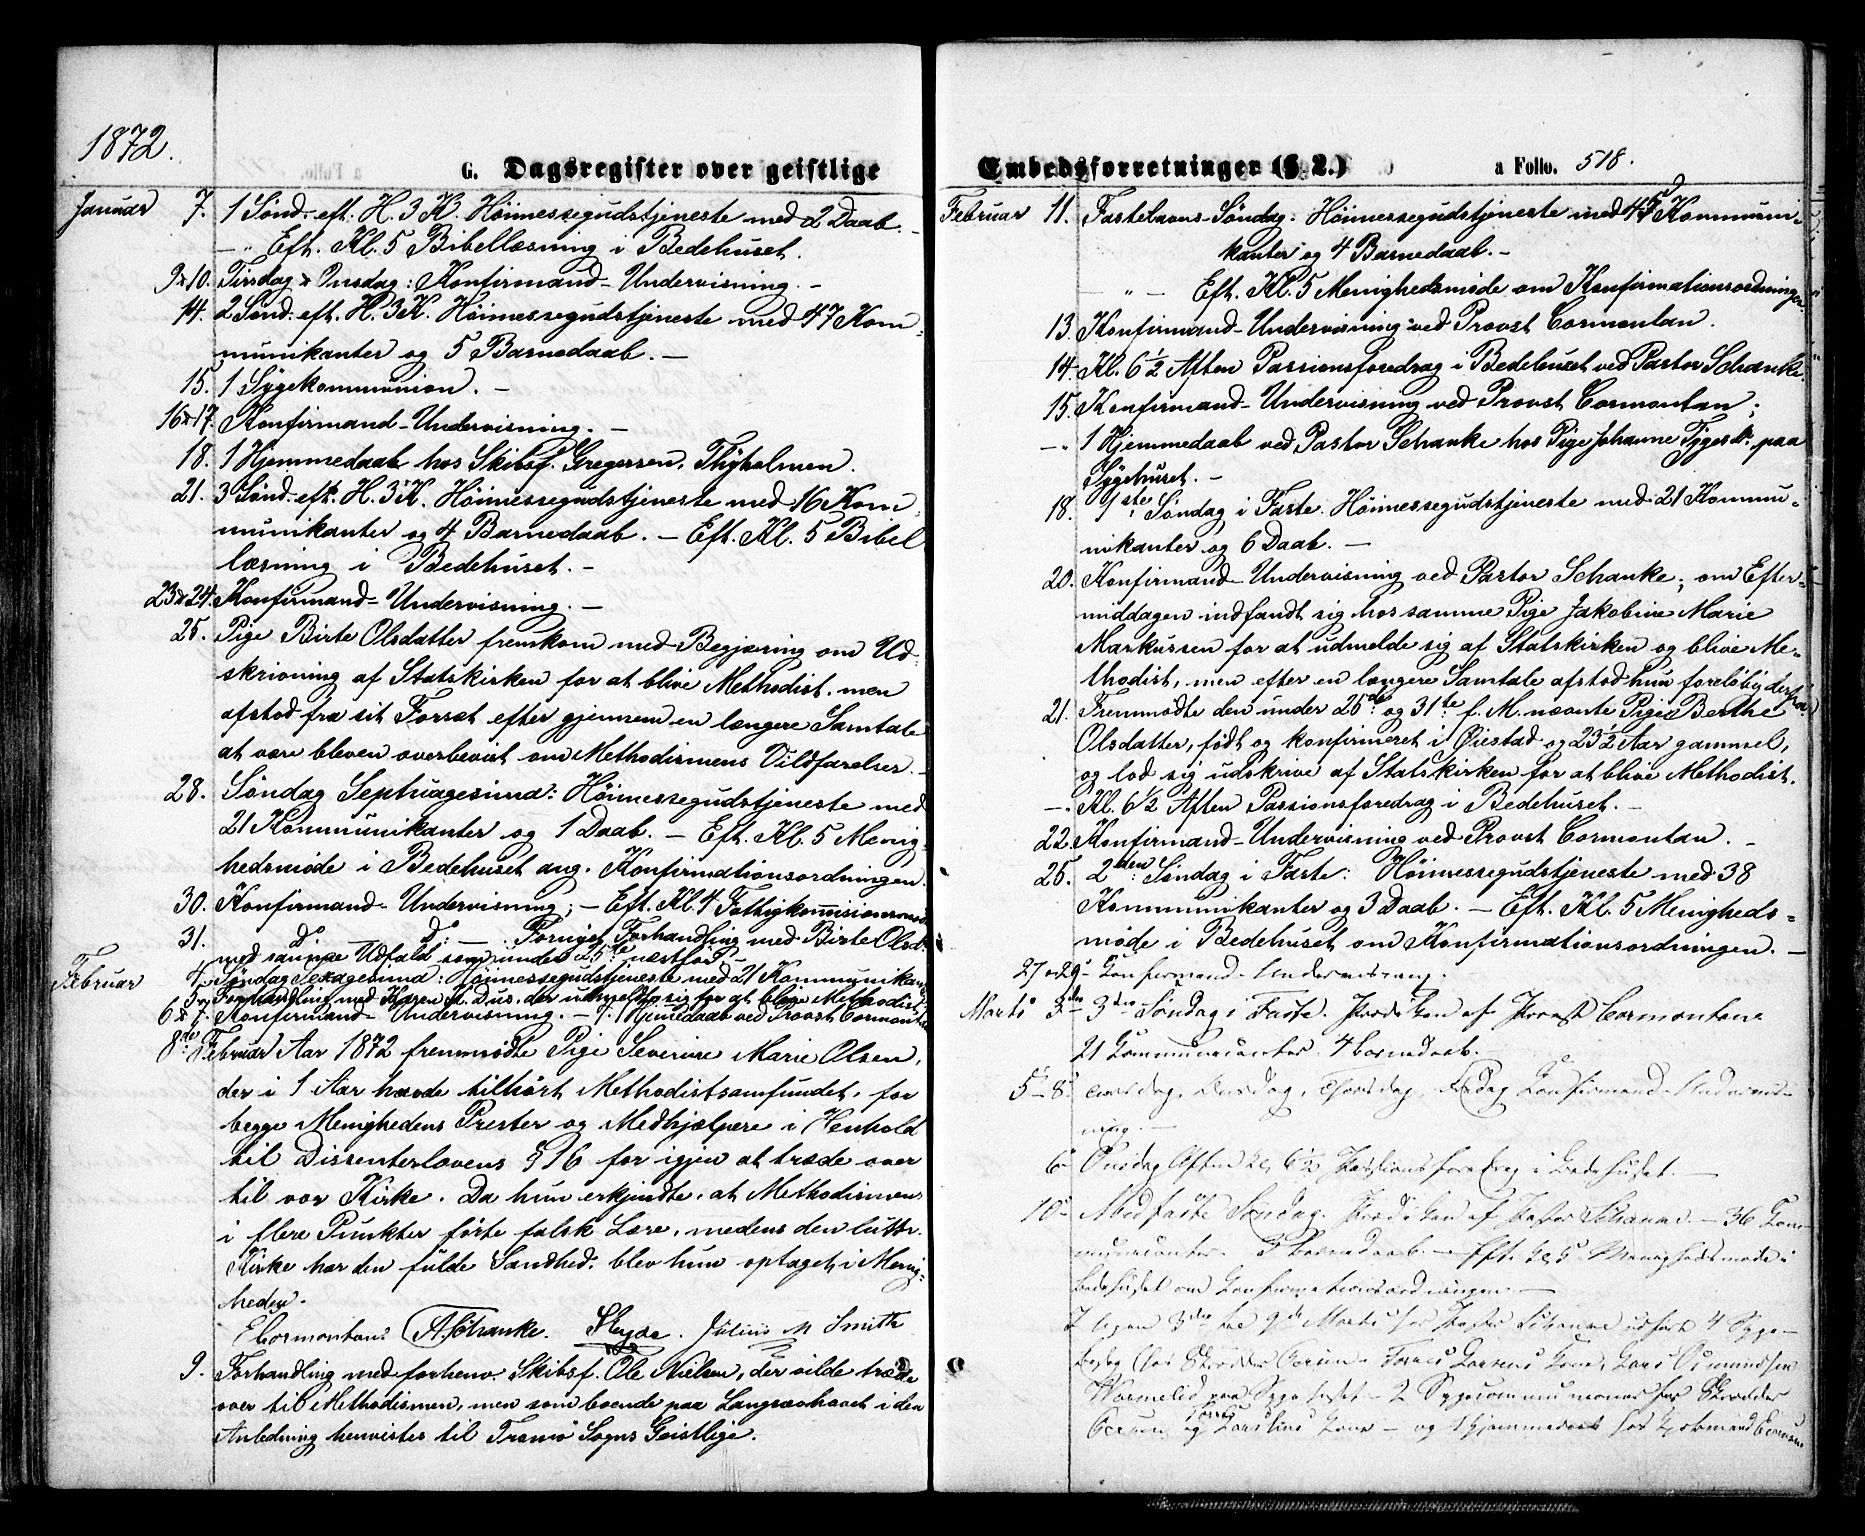 1872.
G. Dagsregister over geistlige
Januar 7. 1 Sønd. eft. H. 3 K. Høimessegudstjeneste med 2 Daab.
— " Eft. Kl. 5 Bibellæsning i Bedehuset.
9 & 10. Tirsdag & Onsdag: Konfirmand-Undervisning. —
14. 2 Sønd. eft. H. 3 K. Høimessegudstjeneste med 47 Kom-
munikanter og 5 Barnedaab. —
15. 1 Sygekommunion. —
16 & 17. Konfirmand-Undervisning. —
18. 1 Hjemmedaab hos Skibsf. Gregersen, Thyholmen.
21. 3 Sønd. eft. H. 3 K. Høimessegudstjeneste med 16 Kom-
munikanter og 4 Barnedaab. — Eft. Kl. 5 Bibel
læsning i Bedehuset. —
23 & 24. Konfirmand-Undervisning. —
25. Pige Birte Olsdatter fremkom med Begjæring om Ud-
skrivning af Statskirken for at blive Methodist, men
afstod fra sit Forsæt efter gjennem en længere Samtale
at være bleven overbevist om Methodismens Vildfarelser. —
28. Søndag Septuagesima: Høimessegudstjeneste med
21 Kommunikanter og 1 Daab. — Eft. Kl. 5 Menig-
hedsmøde i Bedehuset ang. Konfirmationsordningen.
30. Konfirmand-Undervisning; — Eft. Kl. 4 Fattigkommisionsmøde
31. Do — Do — . Fornyet Forhandling med Birte Olsd.
med samme Udfald som under 25de næstfør. —
Februar 4. Søndag Sexagesima: Høimessegudstjeneste med 21 Kommunikan
5. Forhandling med Karen M. Dus, der udmeldte sig for at blive Methodist
6 & 7. Konfirmand-Undervisning. — 7. 1 Hjemmedaab ved Provst Cormontan
8de Februar Aar 1872 fremmødte Pige Severine Marie Olsen,
der i 1 Aar havde tilhørt Methodistsamfundet, for
begge Menighedens Prester og Medhjælpere i Henhold
til Dissenterlovens § 16 for igjen at træde over
til vor Kirke. Da hun erkjendte, at Methodismen
i flere Punkter førte falsk Lære, medens den luth.
Kirke har den fulde Sandhed, blev hun optaget i Menig-
heden.
E Cormontan A. Schanke. Julius M Smith
9. Forhandling med forhenv. Skibsf. Ole Nielsen, der vilde træde
over til Methodismen, men som boende paa Langsævhavet i den
Anledning henvistes til Tromø Sogns Geistlige.
Embedsforretninger (§. 2.) a Folio. 518.
Februar 11. Fastelavns-Søndag: Høimessegudstjeneste med 45 Kommuni-
kanter og 4 Barnedaab. —
— " — Eft. Kl. 5 Menighedsmøde om Konfirmationsordningen.
13. Konfirmand-Undervisning ved Provst Cormontan.
14. Kl. 6 ½ Aften Passionsforedrag i Bedehuset ved Pastor Schanke.
15. Konfirmand-Undervisning ved Provst Cormontan;
— " 1 Hjemmedaab ved Pastor Schanke hos Pige Johanne Tygesdr. paa
Sygehuset. —
18. 1ste Søndag i Faste. Høimessegudstjeneste med 21 Kommu-
nikanter og 6 Daab. —
20. Konfirmand-Undervisning ved Pastor Schanke; om Efter-
middagen indfandt sig hos samme Pige Jakobine Marie
Markussen for at udmelde sig af Statskirken og blive Me-
thodist, men efter en længere Samtale afstod hun foreløbig derfra
21. Fremmødte den under 25de og 31te f. M. nævnte Pige Berthe
Olsdatter, født og konfirmeret i Øiestad og 23½ Aar gammel,
og lod sig udskrive af Statskirken for at blive Methodist.
— " Kl. 6½ Aften Passionsforedrag i Bedehuset. —
22. Konfirmand-Undervisning ved Provst Cormontan. —
25. 2den Søndag i Faste: Høimessegudstjeneste med 38
Kommunikanter og 3 Daab. — Eft. Kl. 5 Menigheds-
møde i Bedehuset om Konfirmationsordningen. —
27 & 29. Confirmand-Undervisning.
Marts 3. 3die Søndag i Faste. Prædiken af Provst Cormontan.
21 Communicanter. 4 barnedaab.
5-8. Tirsdag, Onsdag, Torsdag, Fredag Confirmand-Undervis-
ning. —
6. Onsdag Aften Kl. 6½ Passionsforedrag i Bedehuset. —
10. Midfaste Søndag. Prædiken af Pastor Schanke. — 36 Com-
municanter. 3 barnedaab. — Eft. Kl. 5 Menighedsmøde i
bedehuset om Confirmationsordningen. —
I Ugen 3die til 9de Marts har Pastor Schanke udført 4 Syge-
besøg — 2 Sygecommunioner hos
og — og 1 Hjemmedaab hos